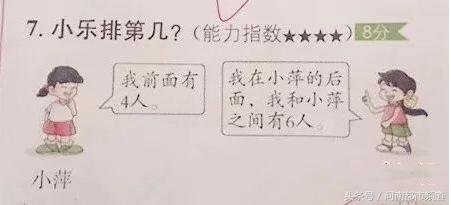 7. 小乐排第几？（能力指数★★★★）8分
我前面有
4人。
我在小萍的后
面，我和小萍
之间有6人。
小萍
头条号／河南都市频道